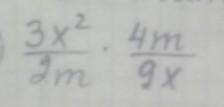 \frac{3x^2}{2m} \cdot \frac{4m}{9x}